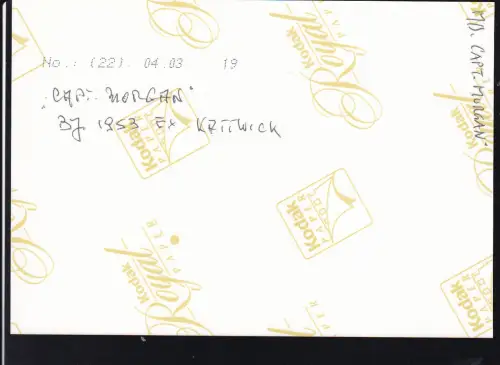 No.: (22). 04.03 19
"CAPT. MORGAN"
Bj 1953 Ex KATTWICK
MD. CAPT. MORGAN"
Kodak
Royal
PAPER
Kodak
PAPER
Kodak
PAPER
Kodak
Royal
PAPER
Kodak
PAPER